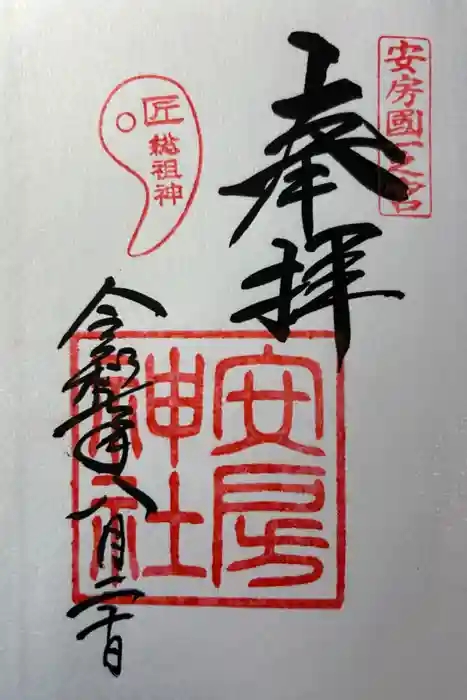 安房國一之宮
奉拝
安房
神社
匠
総祖神
令和
年八月二十日